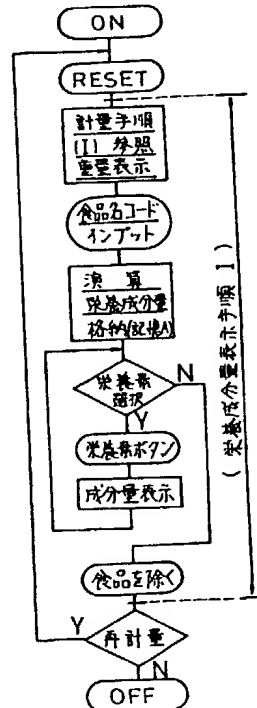 ON
RESET
計量手順
(I) 参照
重量表示
食品名コード
インプット
演算
栄養成分量
格納(記憶A)
栄養素
選択
N
Y
栄養素ボタン
成分量表示
食品を除く
Y
再計量
N
OFF
(栄養成分量表示手順 I)